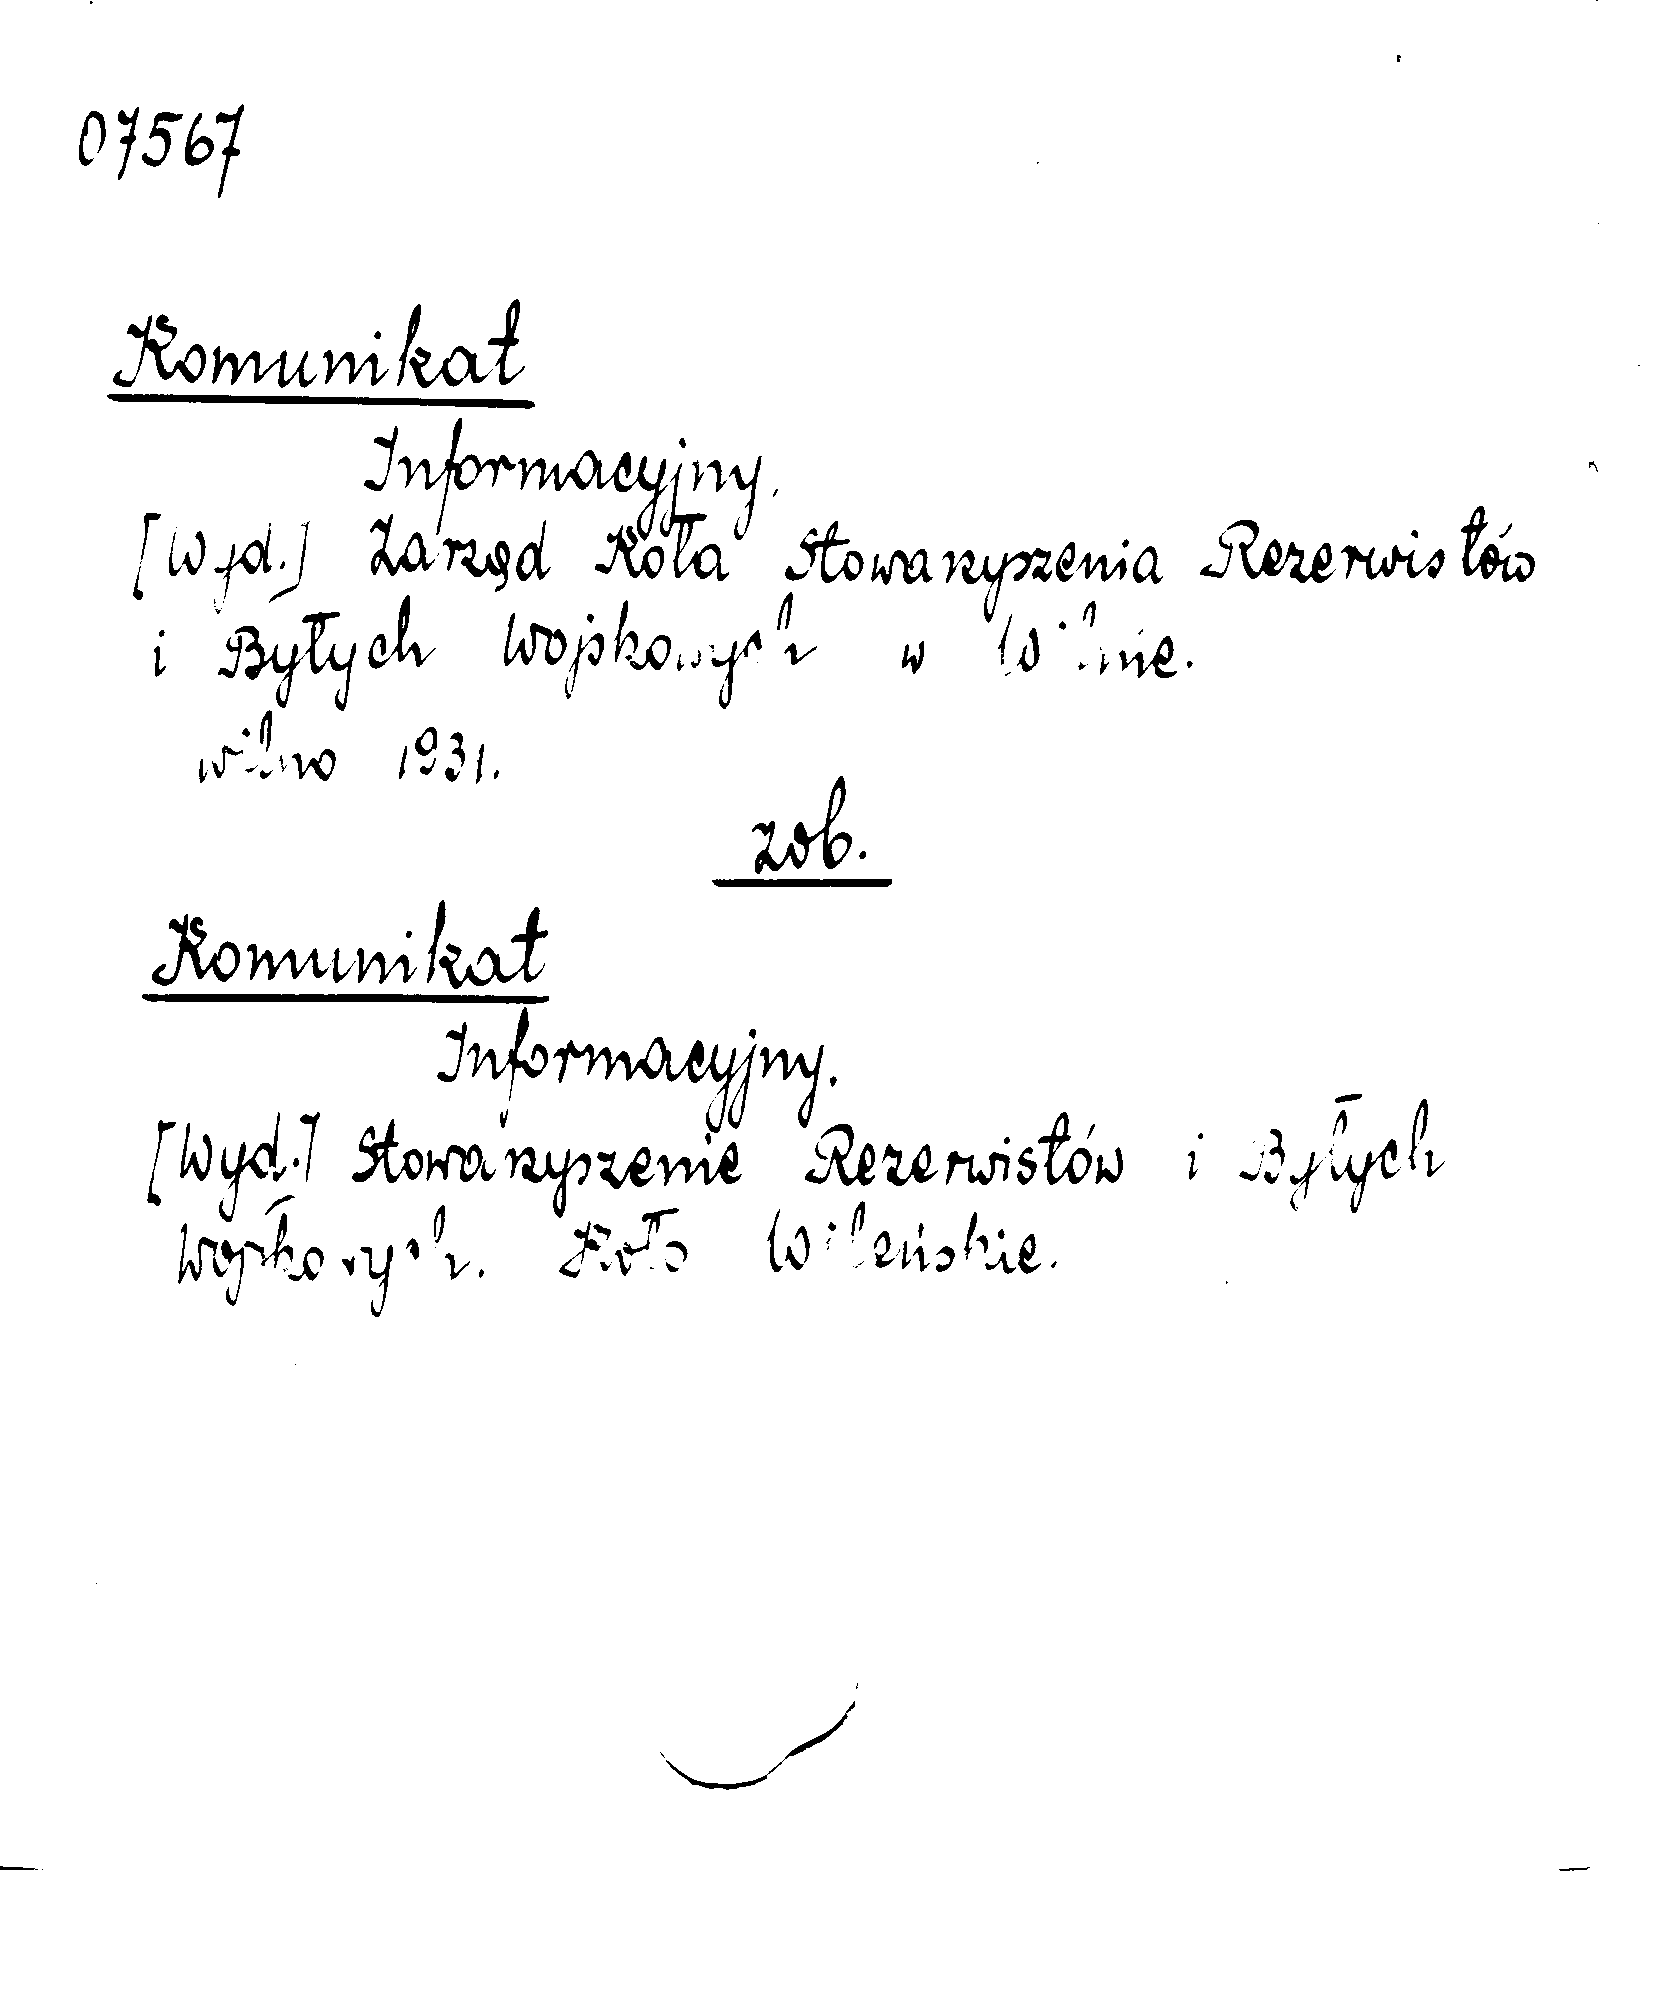 07567
Komunikat
Informacyjny.
[Wyd.] Zarząd Koła Stowarzyszenia Rezerwistów
i Byłych Wojskowych w Wilnie.
Wilno 1931.
zob.
Komunikat
Informacyjny.
[Wyd.] Stowarzyszenie Rezerwistów i Byłych
Wojskowych. Koło Wileńskie.